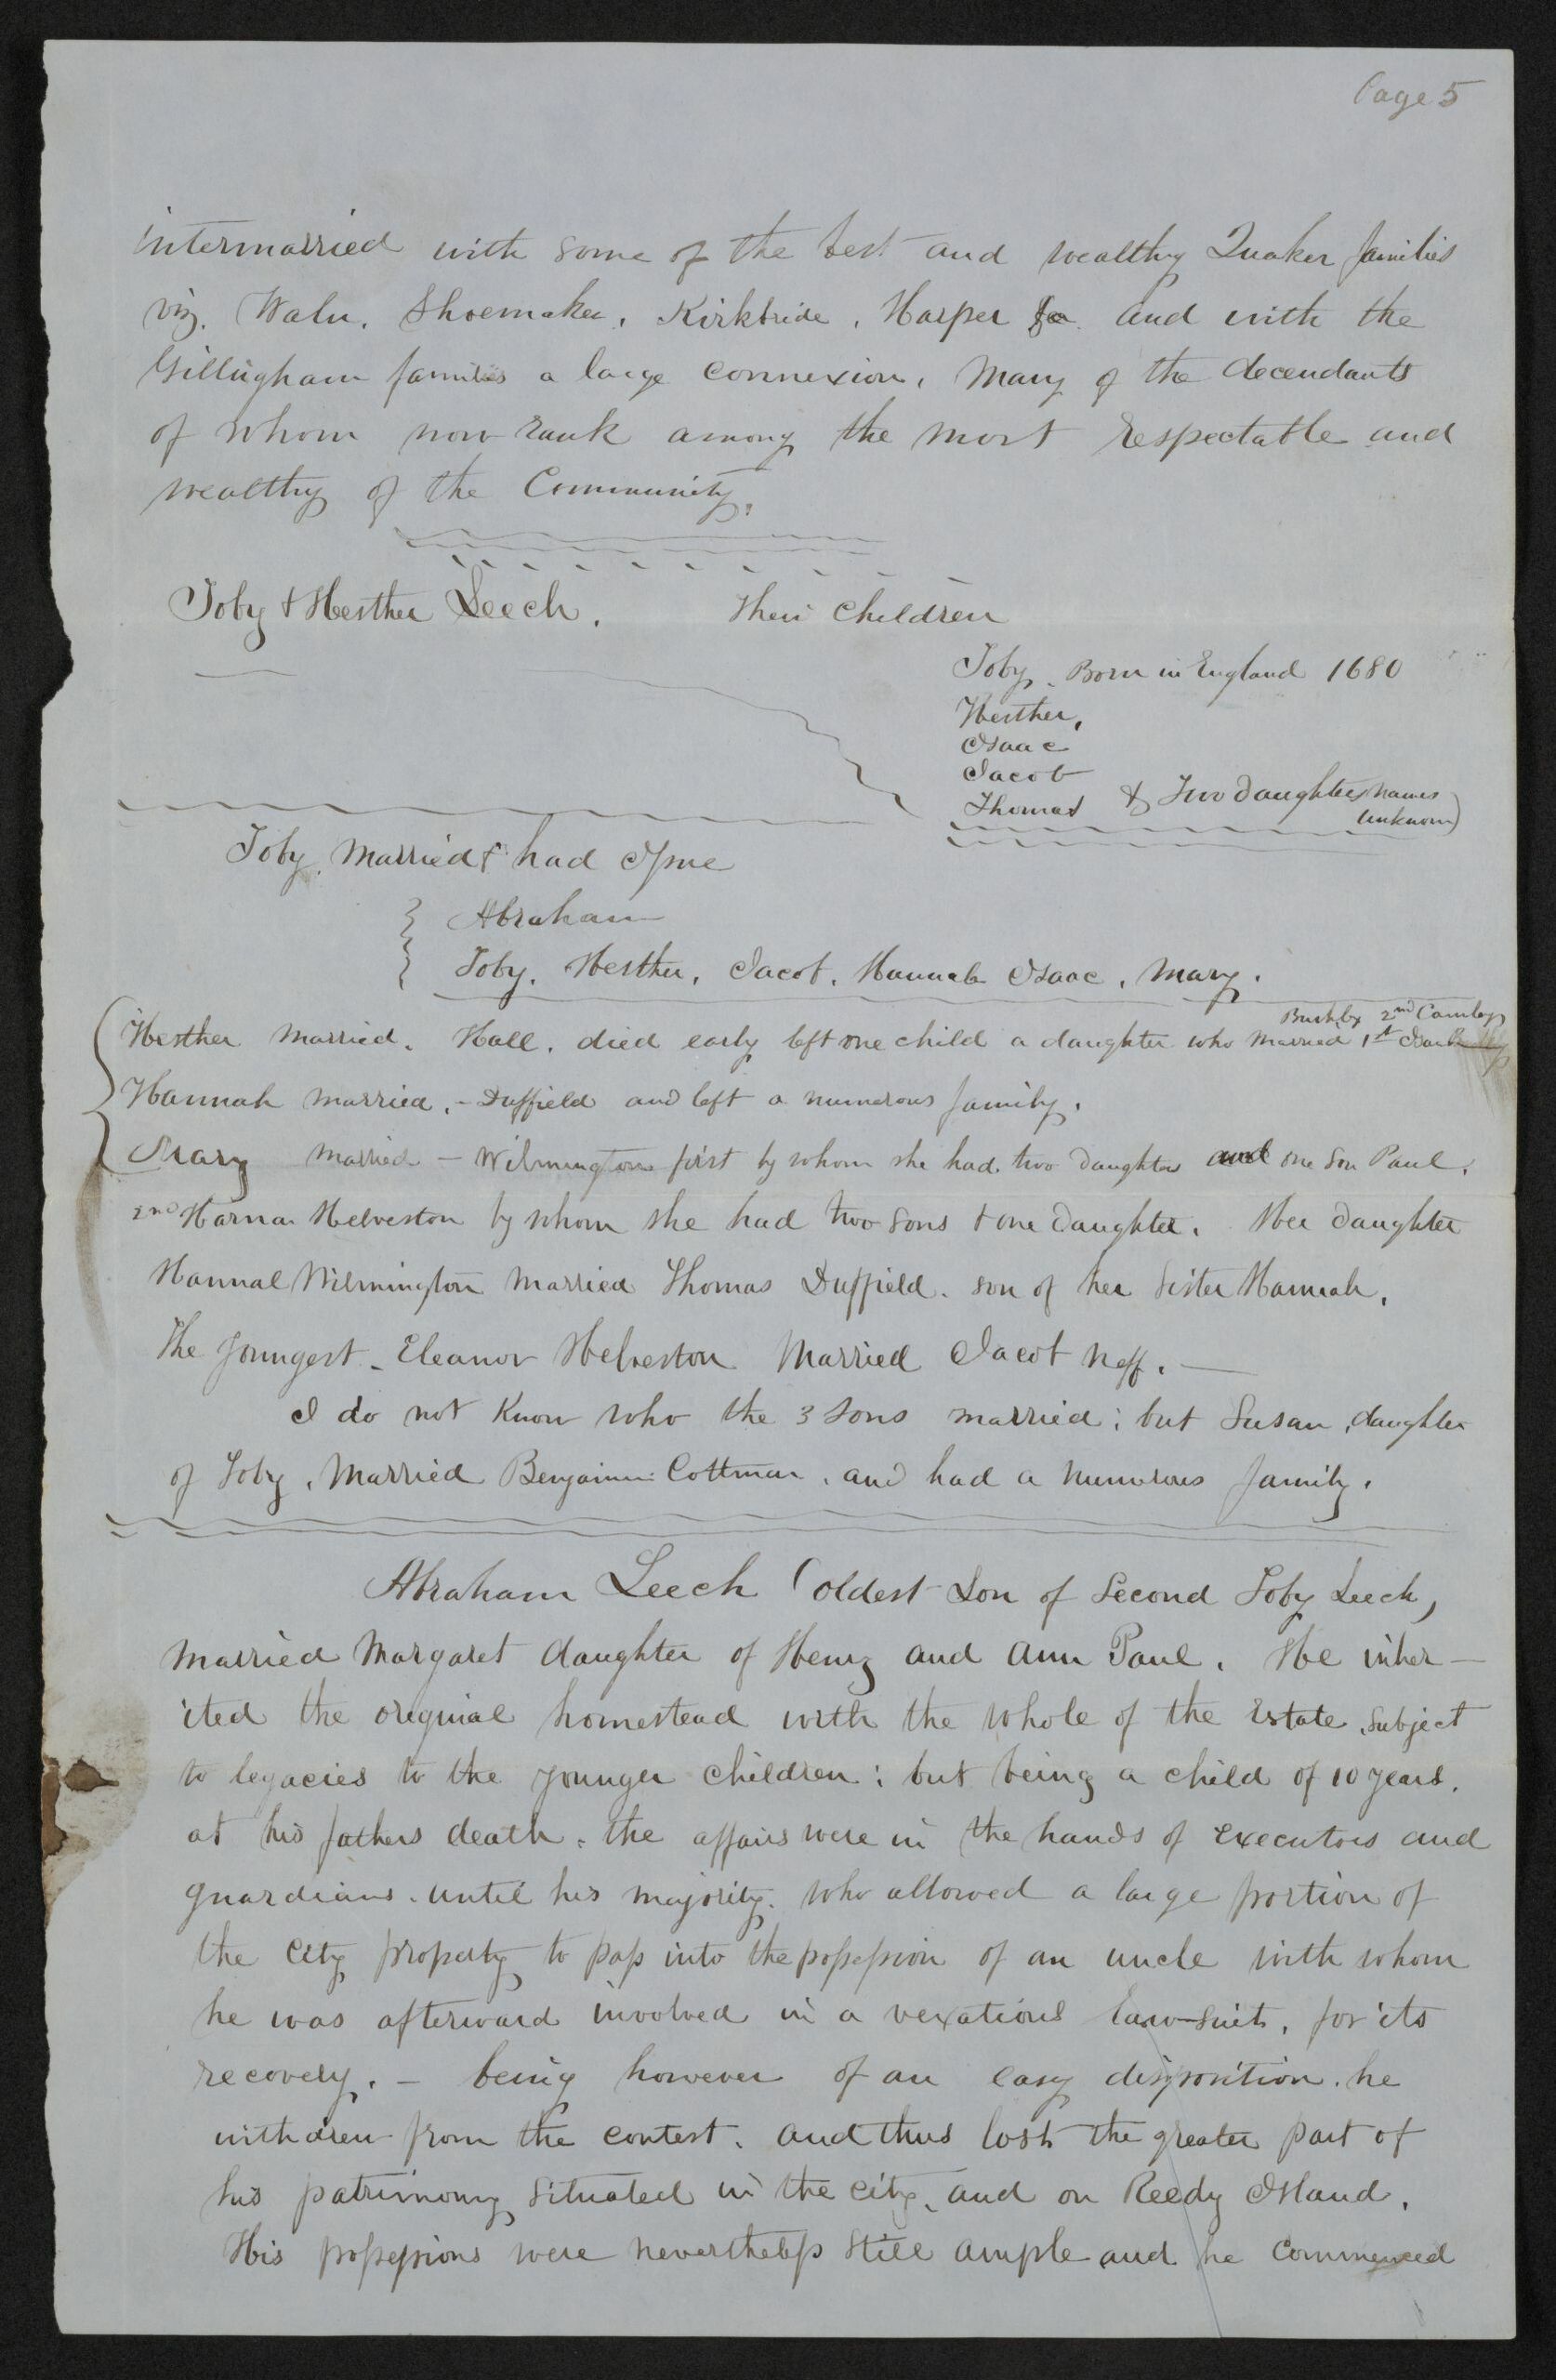 Page 5
intermarried with some of the best and wealthy Quaker families
viz. Waln, Shoemaker, Kirkbride, Harper and with the
Gillingham families a large connexion, Many of the decendants
of whom now rank among the most respectable and
wealthy of the Community.
Toby & Hesther Leech. Their Children
Toby. Born in England 1680
Hesther,
Isaac
Jacob
Thomas & Two daughters names
unknown)
Toby, Married & had Issue
Abraham
Toby, Hesther, Jacob, Hannah Isaac, Mary.
Bushby 2nd Comly
Hesther married. Hall. died early left one child a daughter who married 1st Isaac
Hannah married. - Duffield and left a numerous family.
Mary married - Wilmington first by whom she had two daughters and one Son Paul.
2nd Harman Helveston by whom she had two sons & one daughter. Her daughter
Hannah Wilmington Married Thomas Duffield. son of her Sister Hannah.
The youngest - Eleanor Helveston Married Jacob Neff. —
I do not know who the 3 sons married; but Susan, daughter
of Toby, Married Benjamin Cottman, and had a numerous family.
Abraham Leech (oldest Son of Second Toby Leech,
married Margaret daughter of Henry and Ann Paul. He inher-
ited the original homestead with the whole of the Estate, subject
to legacies to the younger children; but being a child of 10 years,
at his fathers death, the affairs were in the hands of executors and
guardians. until his majority. who allowed a large portion of
the City property to pass into the possession of an uncle with whom
he was afterward involved in a vexatious law-suit, for its
recovery. - being however of an easy disposition. he
withdrew from the contest. and thus lost the greater part of
his patrimony situated in the city, and on Reedy Island.
His possessions were nevertheless still ample and he commenced